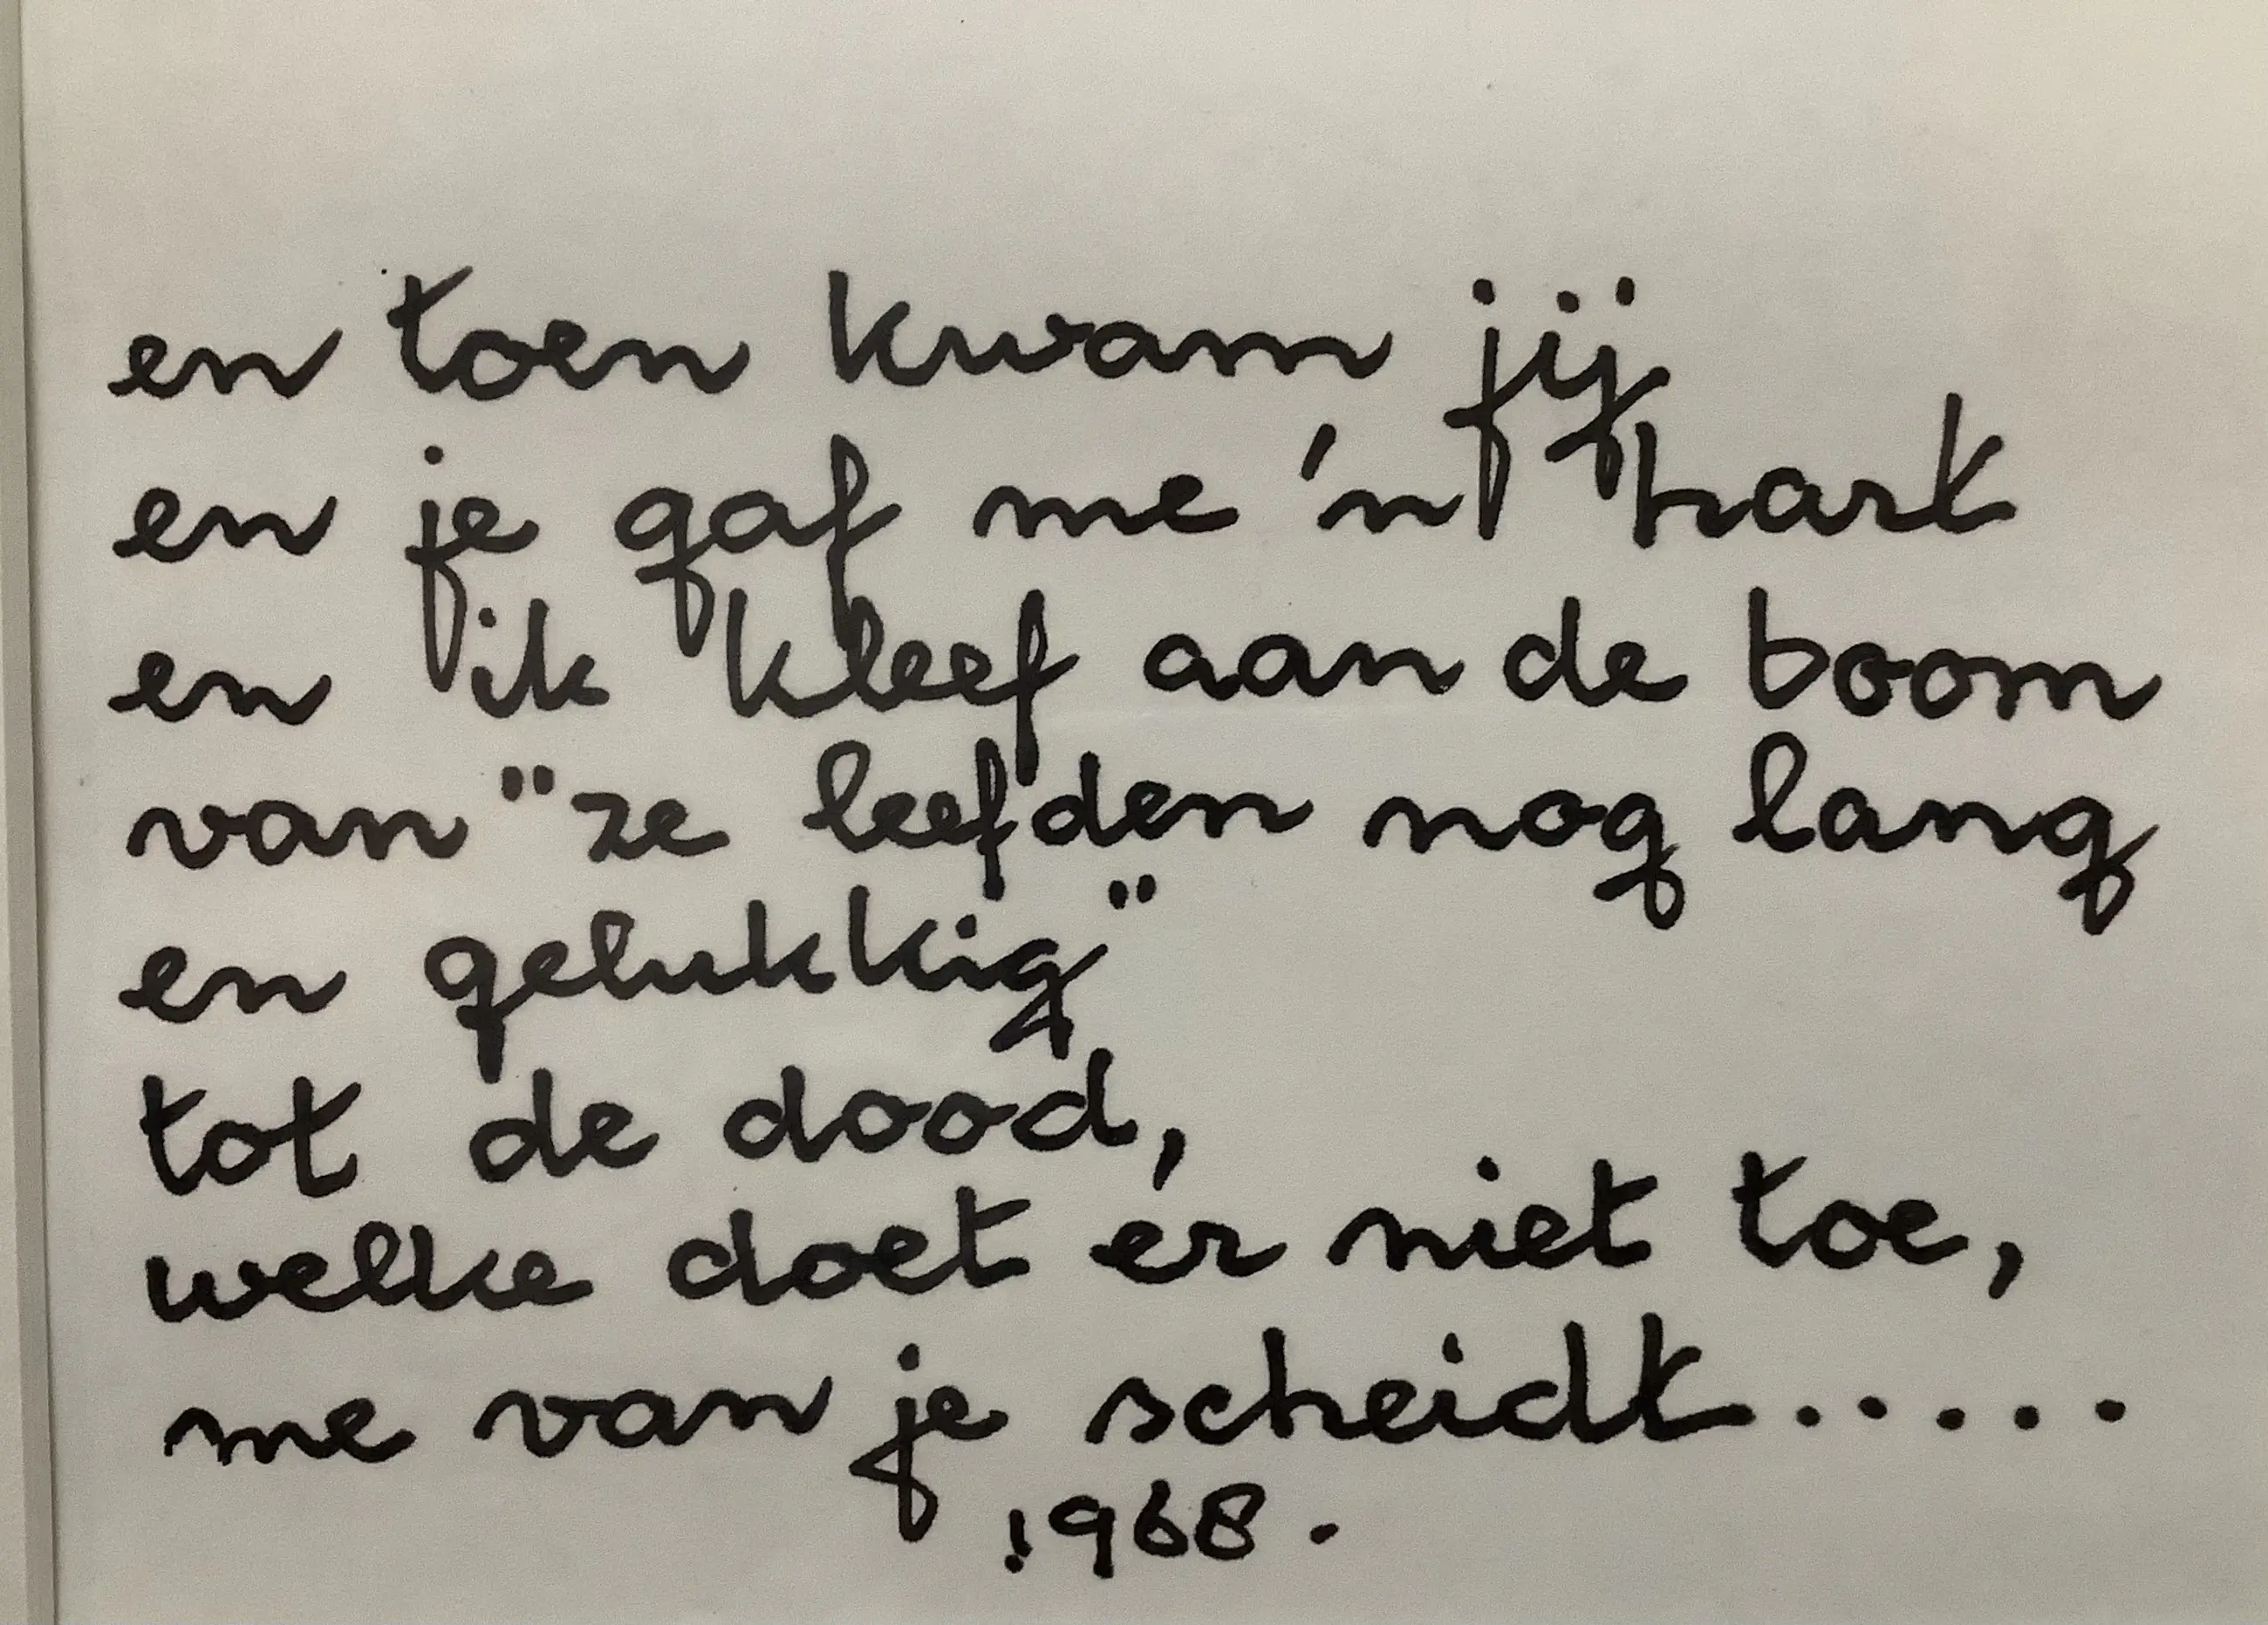 en toen kwam jij
en je gaf me 'n hark
en ik kleef aan de boom
van "ze leefden nog lang
en gelukkig"
tot de dood,
welke doet er niet toe,
me van je scheidt.....
1968.